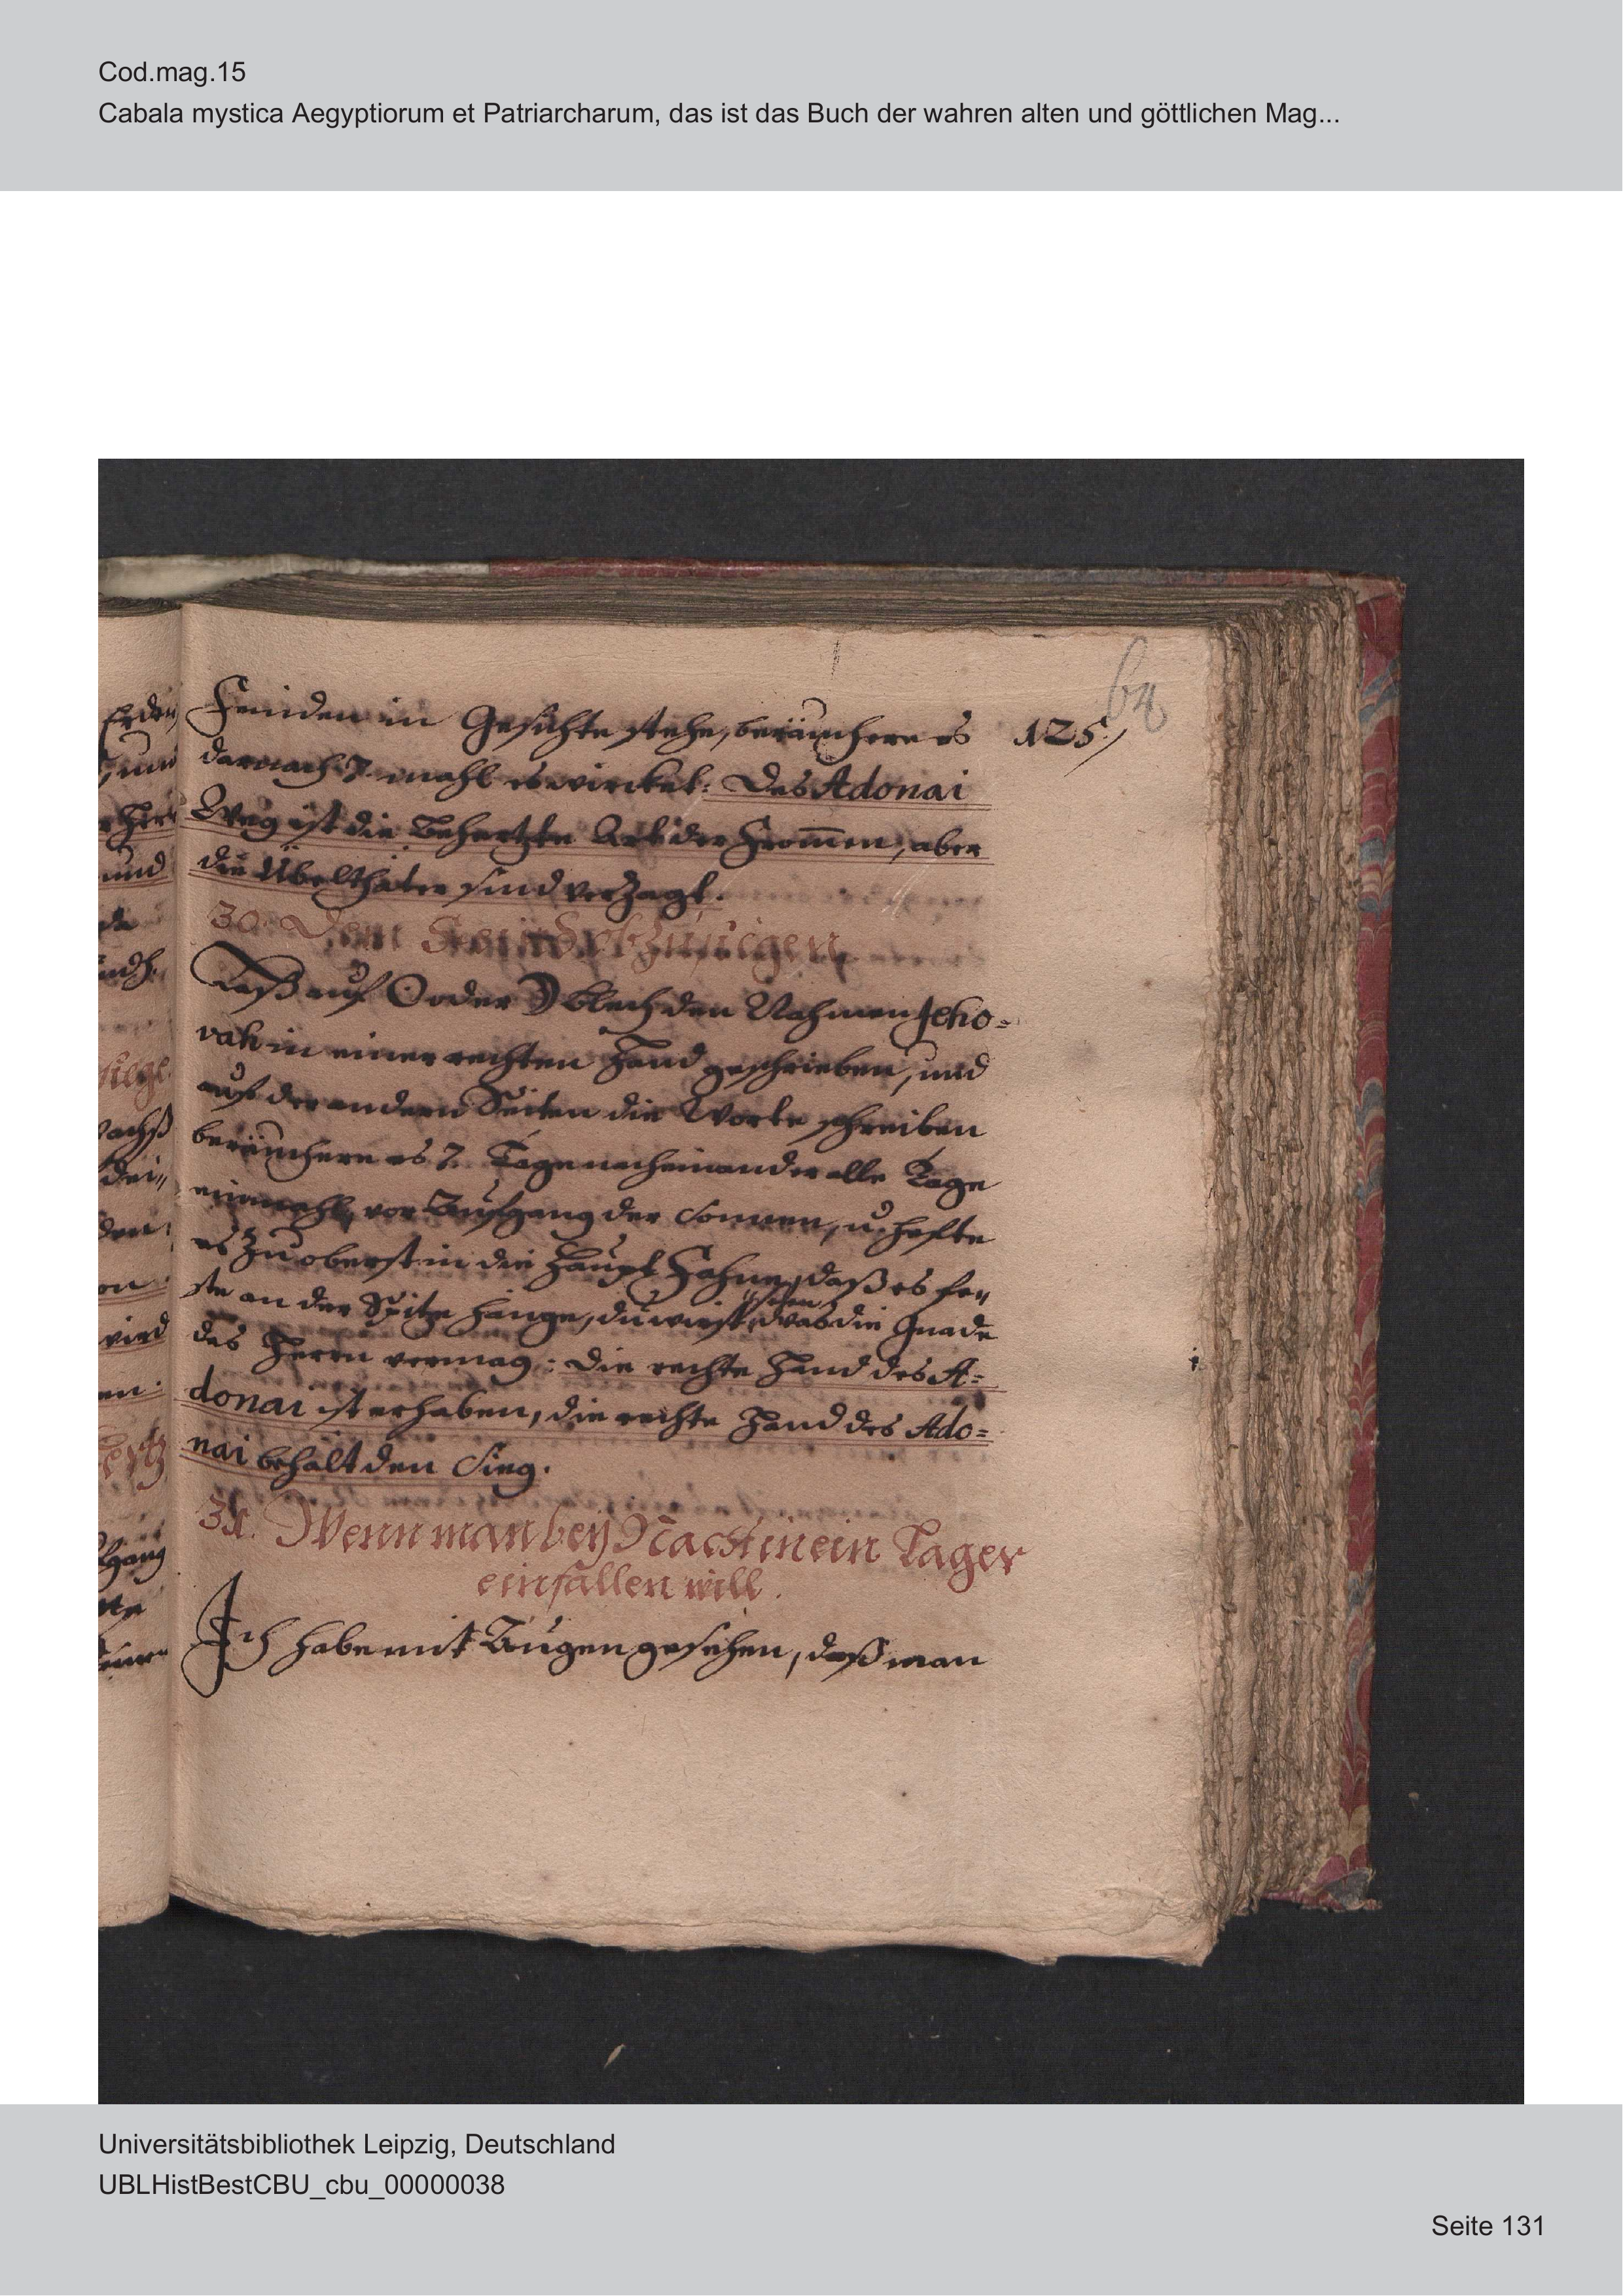 Cod.mag.15
Cabala mystica Aegyptiorum et Patriarcharum, das ist das Buch der wahren alten und göttlichen Mag...
64
Feinden in Gesichte stehe, beräuchere es 125.
darnach 7. mahl es wircket: Des Adonai
Weg ist die Behertzte Art der From̅en, aber
die Übelthäter sind verzagt.
30. Dem Feind obzusiegen
Laß auf ☉ oder ☽ blech den Nahmen Jeho=
vah in einer rechten Hand geschrieben, und
auf der andern Seiten die Worte schreiben
beräuchere es 7. Tage nacheinander alle Tage
einmahl, vor Aufgang der Sonnen, u. hefte
es zu oberst in die Haupt Fahne, daß es fe„
ste an der Spitze hänge, du wirst sehen was die Gnade
des Herrn vermag: Die rechte Hand des A=
donai ist erhaben, die rechte Hand des Ado=
nai behält den Sieg.
31. Wenn man bey Nacht in ein Lager
einfallen will.
Ich habe mit Augen gesehen, daß man
Universitätsbibliothek Leipzig, Deutschland
UBLHistBestCBU_cbu_00000038
Seite 131